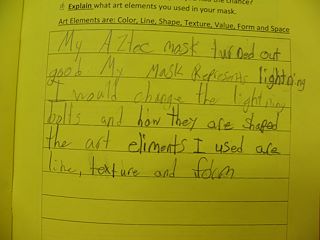 had the chance?
Explain what art elements you used in your mask.
Art Elements are: Color, Line, Shape, Texture, Value, Form and Space
My Aztec mask turned out
good. My Mask Represents lightning
I would change the lightning
bolts and how they are shaped
the art eliments I used are
line, texture and form